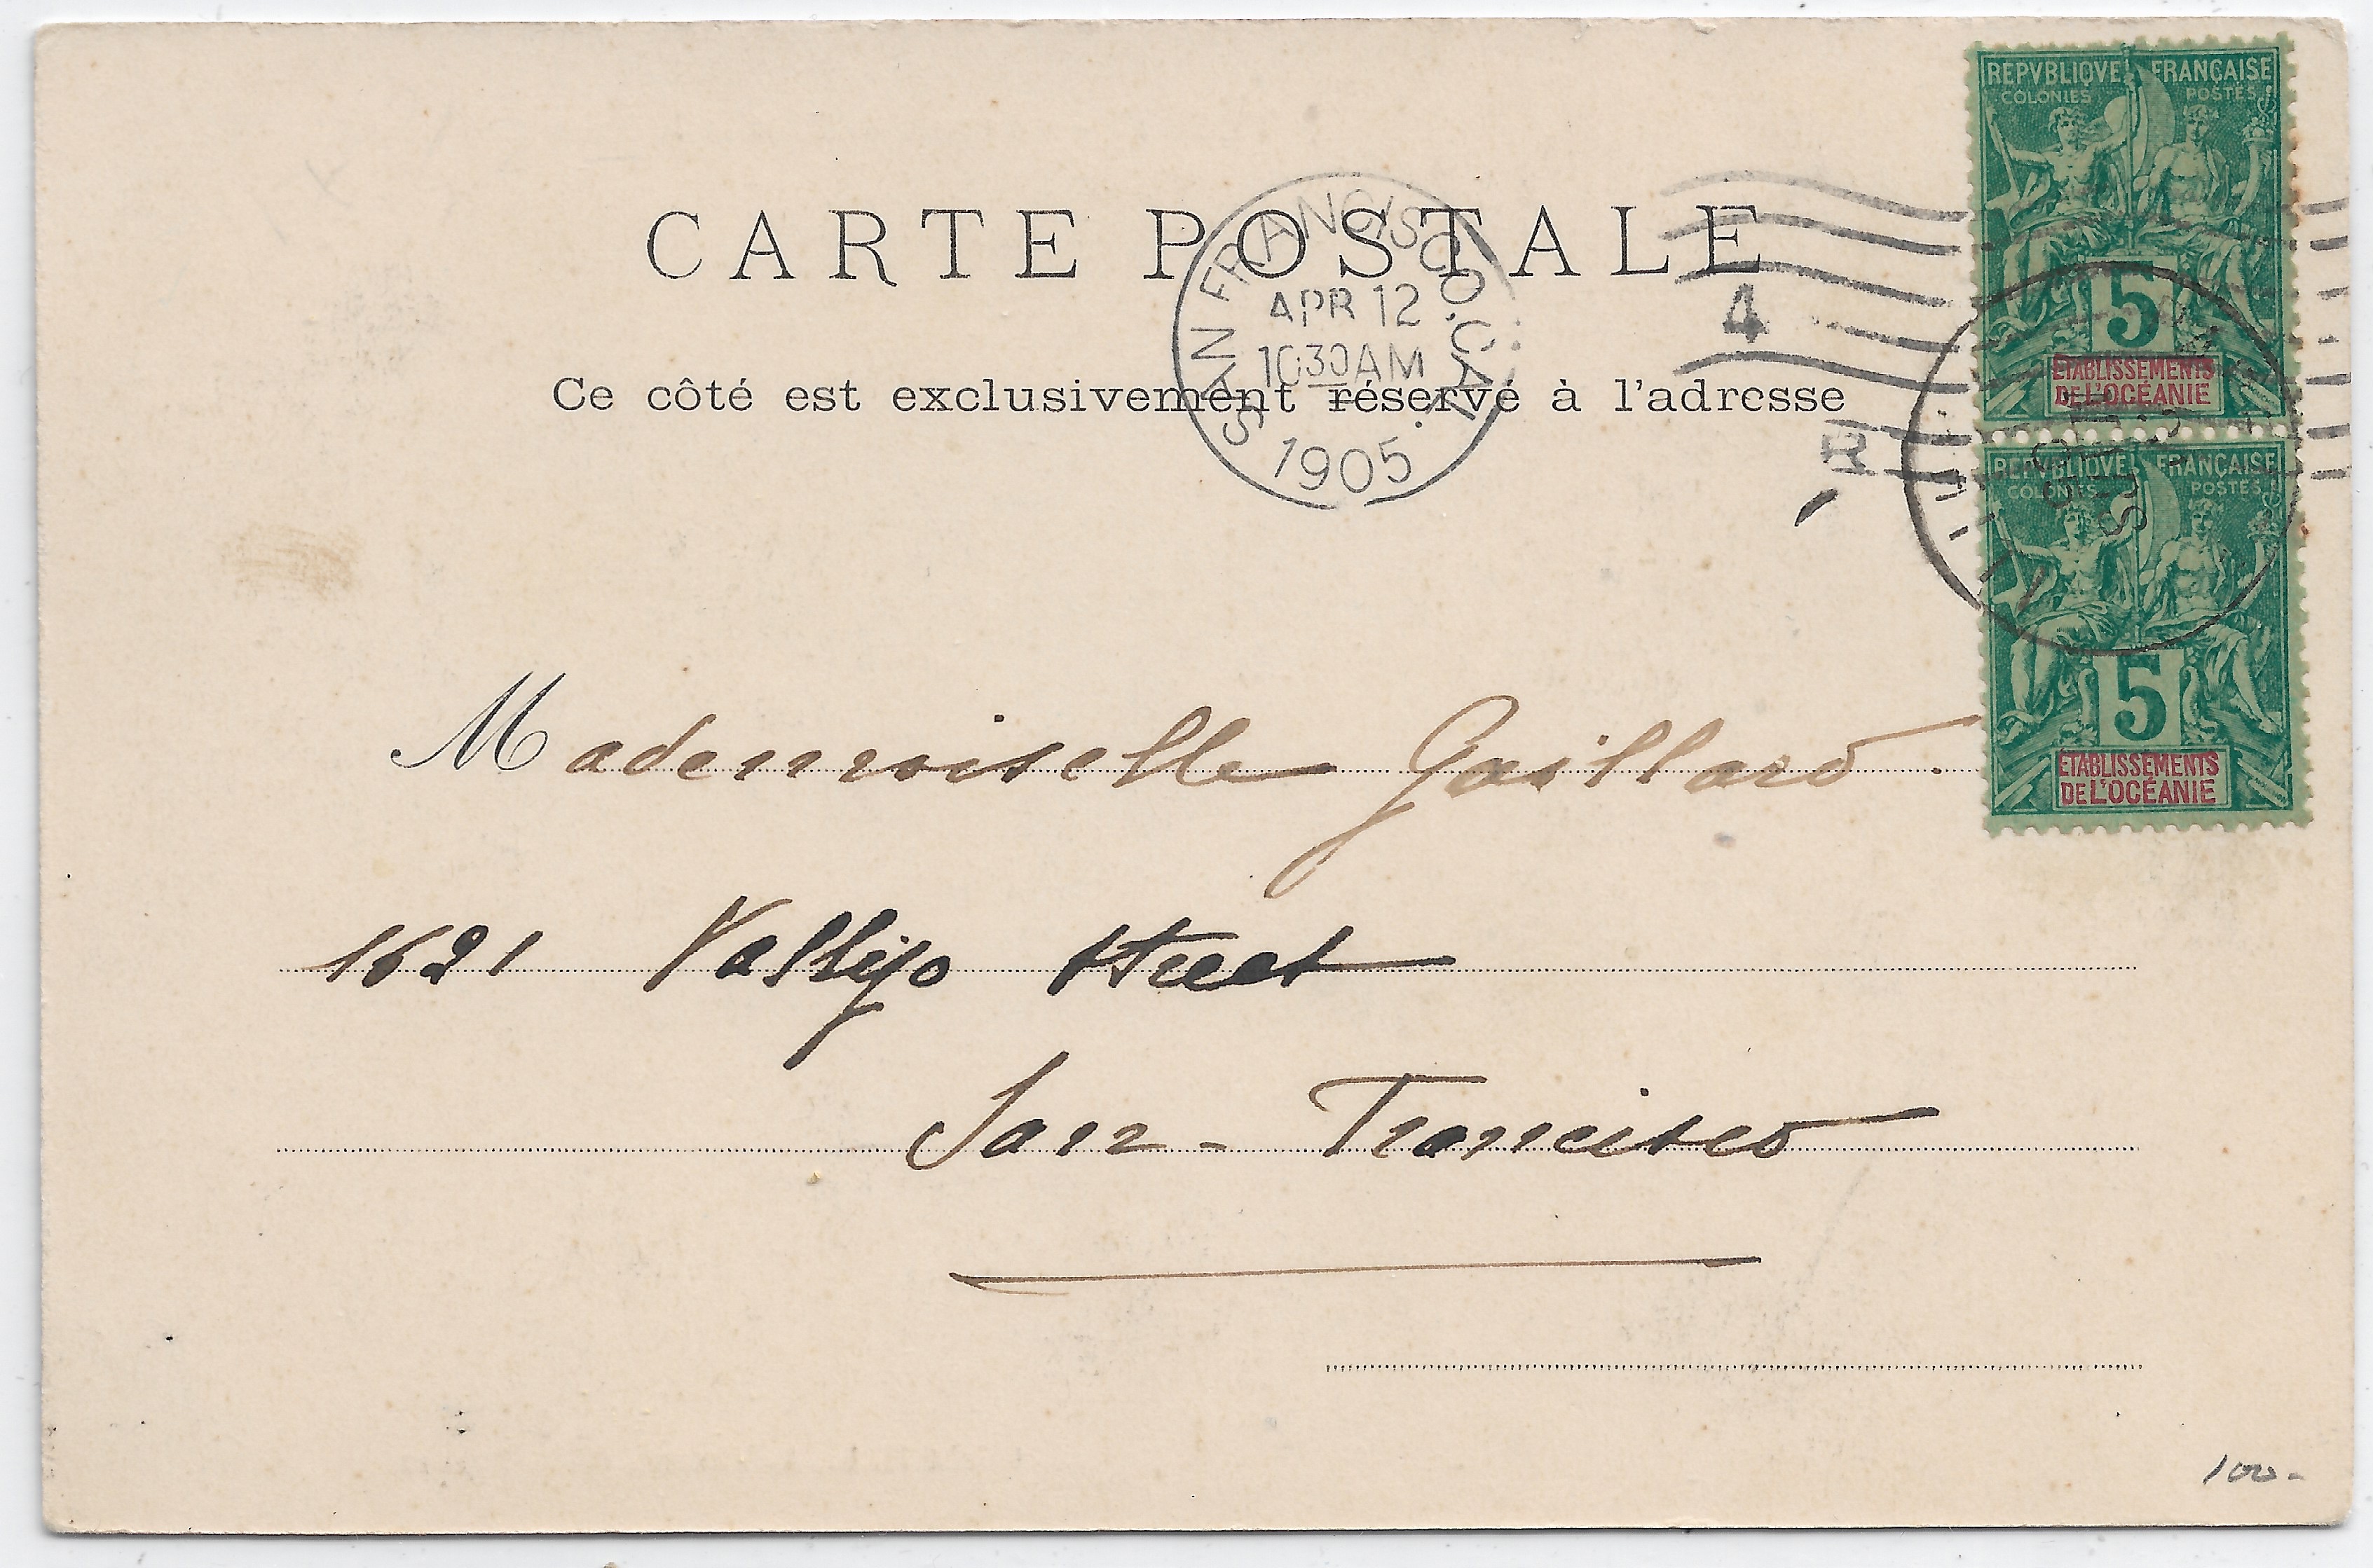 REPVBLIQVE FRANÇAISE
COLONIES POSTES
5
ÉTABLISSEMENTS
DE L'OCÉANIE
CARTE POSTALE
SAN FRANCISCO, CAL.
APR 12
10 30 AM
1905
4
Ce côté est exclusivement réservé à l'adresse
R
REPVBLIQVE FRANÇAISE
COLONIES POSTES
5
ÉTABLISSEMENTS
DE L'OCÉANIE
Mademoiselle Gaillard.
1621 Vallejo street
San-Francisco
100-